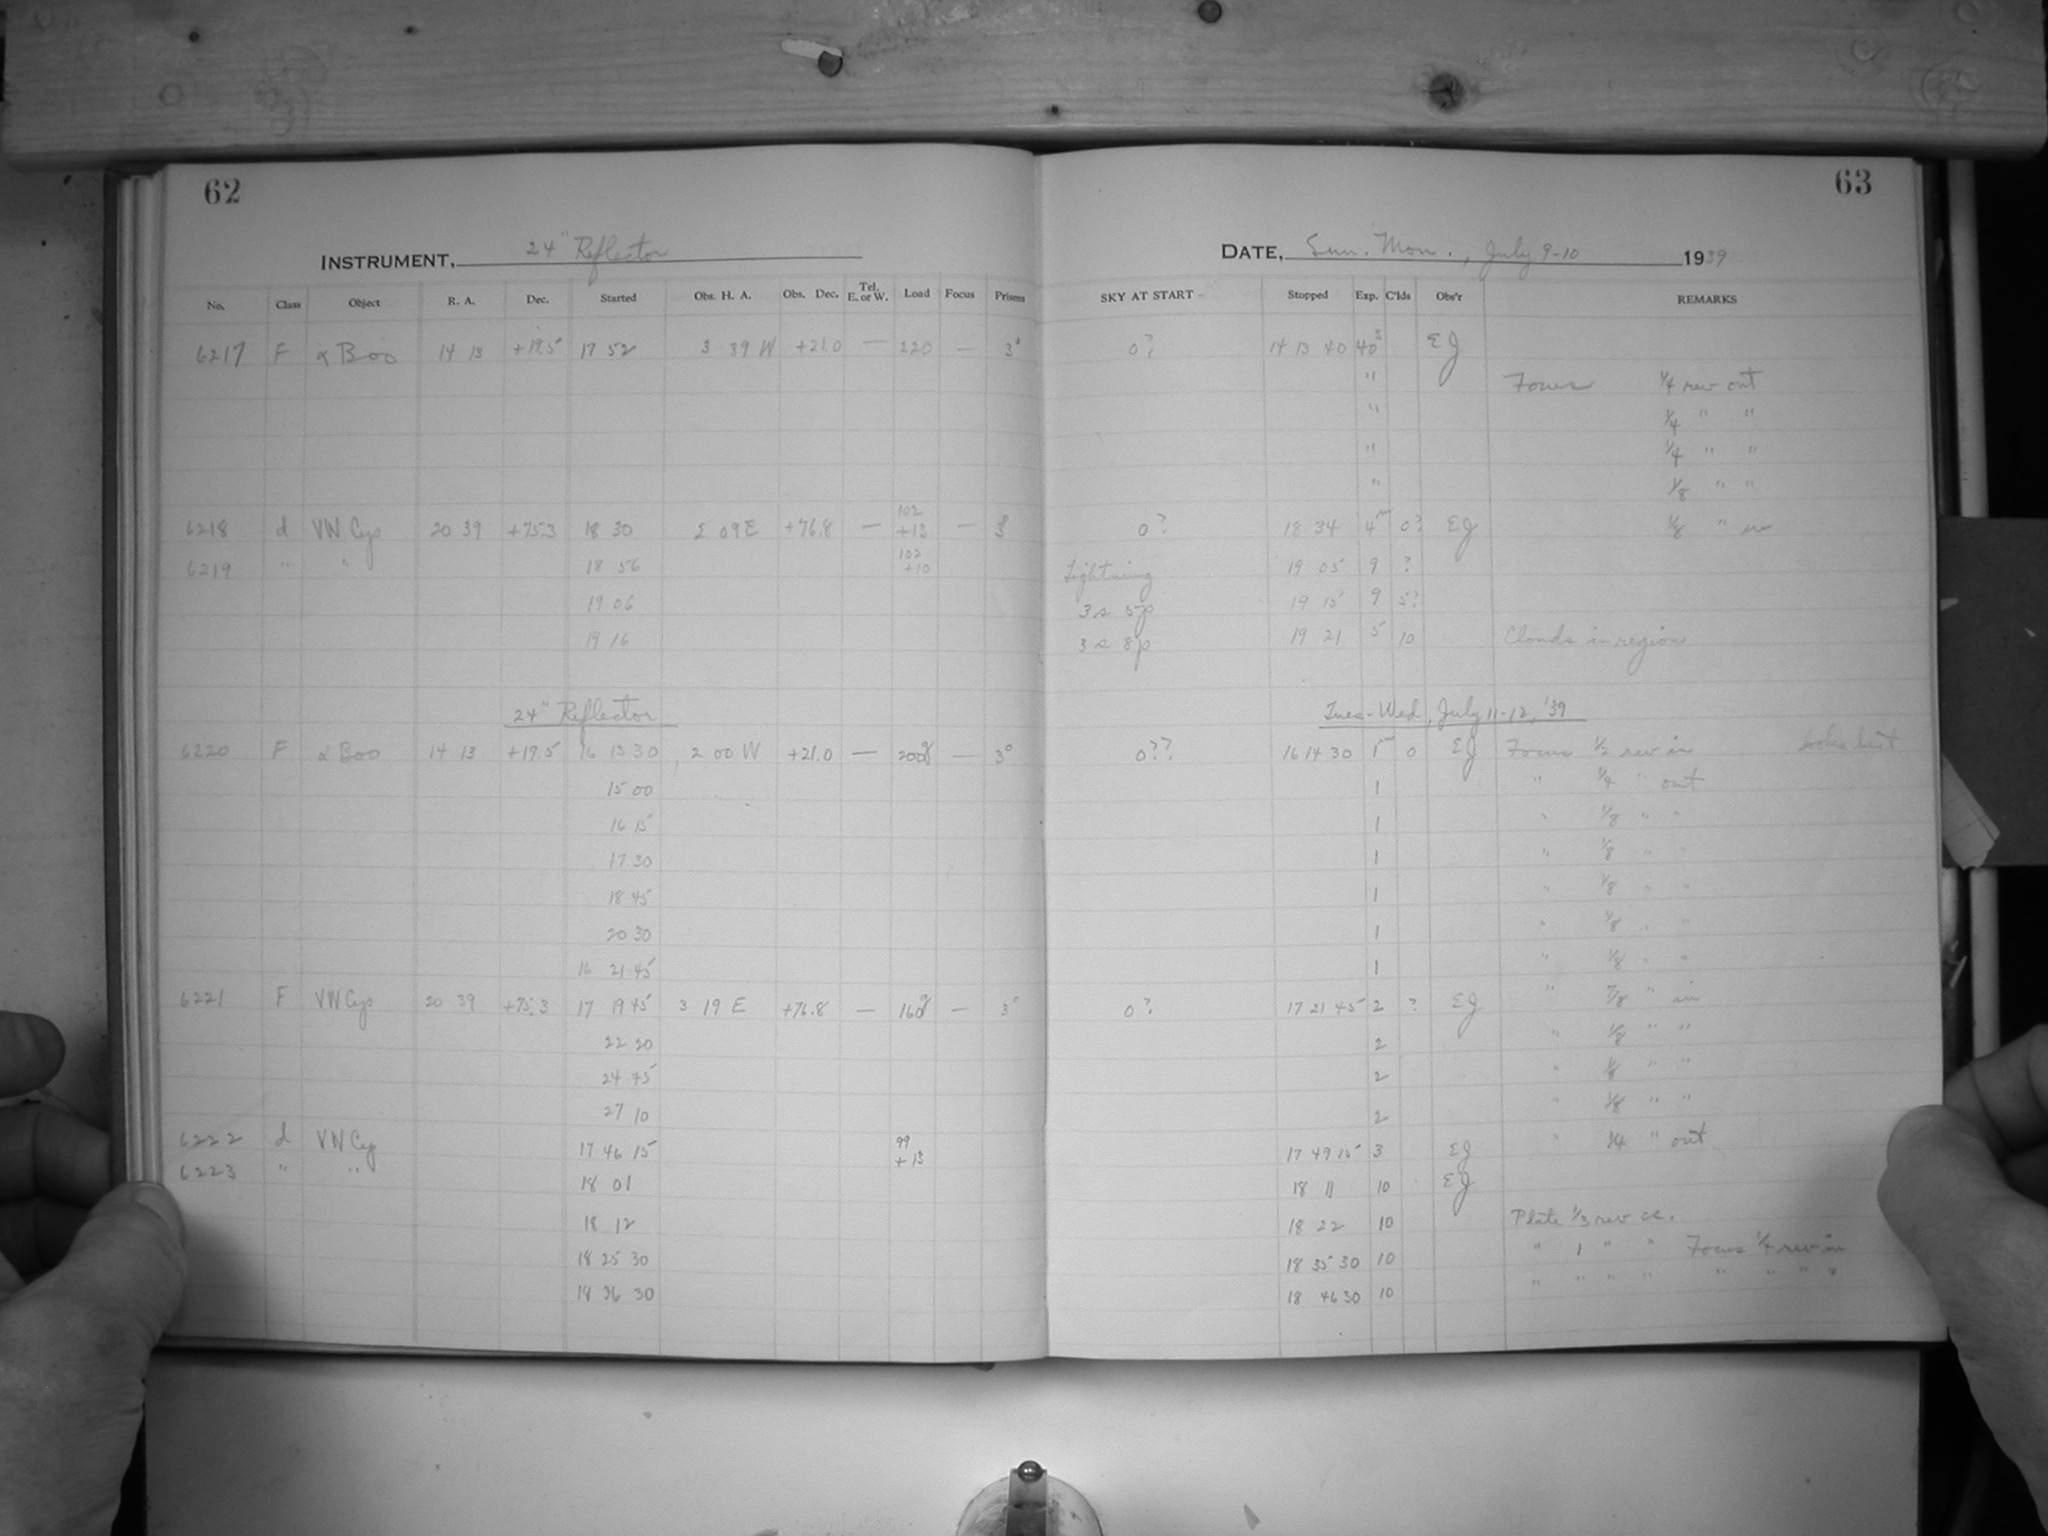 62
INSTRUMENT, 24" Reflector
No. Class Object R. A. Dec. Started Obs. H. A. Obs. Dec. Tel. E. or W. Load Focus Prisms
6217 F α Boo 14 13 +19.5 17 52 3 39 W +21.0 — 220 — 3°
6218 d VW Cep 20 39 +75.3 18 30 2 09 E +76.8 — 102 +13 — 3
6219 " " 18 56 102 +10
19 06
19 16
24" Reflector
6220 F α Boo 14 13 +19.5 16 13 30 2 00 W +21.0 — 200g — 3°
15 00
16 15
17 30
18 45
20 30
16 21 45
6221 F VW Cep 20 39 +75.3 17 19 45 3 19 E +76.8 — 160g — 3°
22 20
24 45
27 10
6222 d VW Cep 17 46 15 99 +13
6223 " " 18 01
18 12
18 25 30
18 36 30
63
DATE, Sun. Mon., July 9-10 1939
SKY AT START Stopped Exp. C'lds Obs'r REMARKS
0? 14 13 40 40s EJ
" Focus 1/4 rev out
" 1/4 " "
" 1/4 " "
" 1/8 " "
0? 18 34 4m 0? EJ 1/8 " in
Lightning 19 05 9 ?
3s 5p 19 15 9 5?
3s 8p 19 21 5 10 Clouds in region
Tues-Wed, July 11-12, '39
0?? 16 14 30 1m 0 EJ Focus 1/2 rev in looks best
1 " 3/4 " out
1 " 1/8 " "
1 " 1/8 " "
1 " 1/8 " "
1 " 1/8 " "
1 " 1/8 " "
0? 17 21 45 2 ? EJ " 7/8 " in
2 " 1/8 " "
2 " 1/8 " "
2 " 1/8 " "
17 49 15 3 EJ " 1/4 " out
18 11 10 EJ
18 22 10 Plate 1/3 rev cc.
18 35 30 10 " 1 " " Focus 1/4 rev in
18 46 30 10 " " " " " " " "